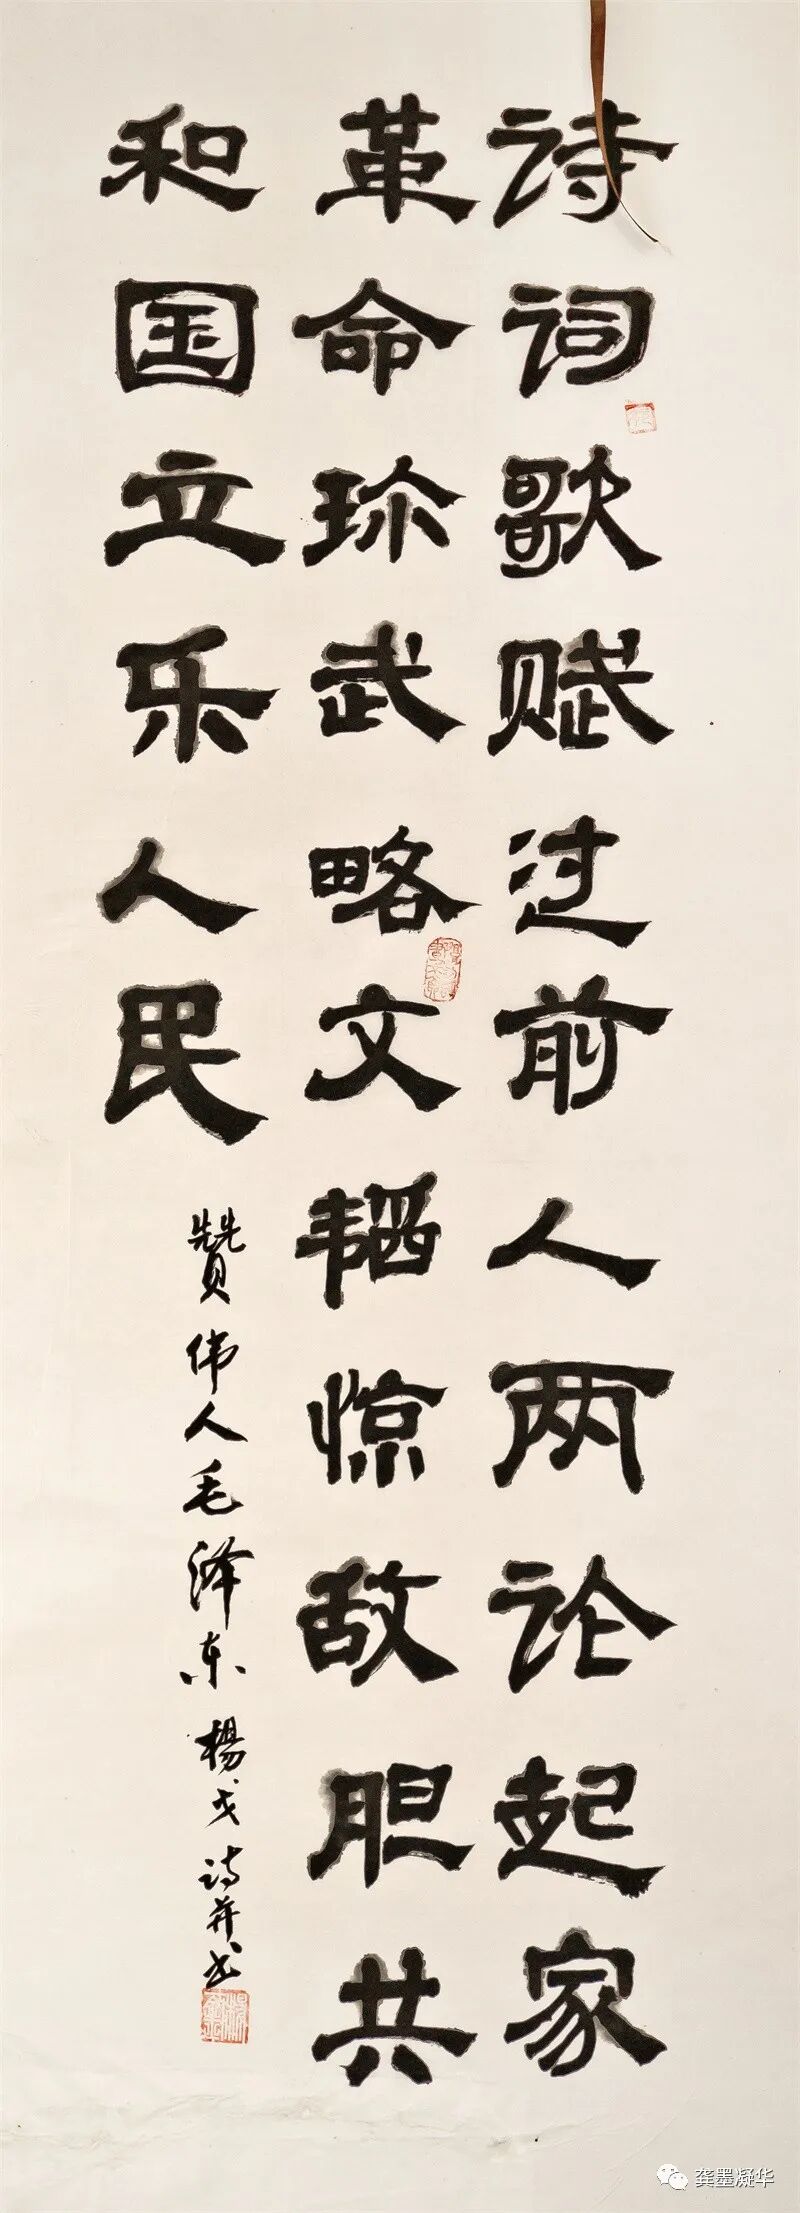 诗词歌赋过前人两论起家
革命珎武略文韬惊敌胆共
和国立乐人民
赞伟人毛泽东 楊戈诗并书
龚墨凝华